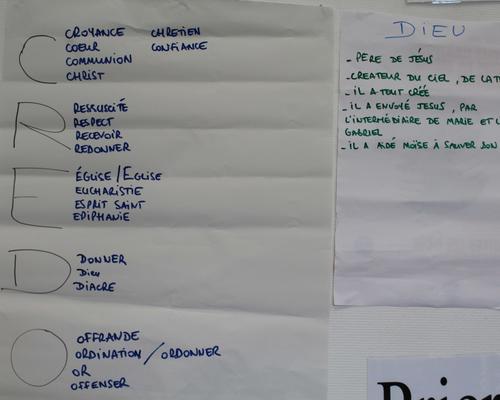 C
CROYANCE CHRETIEN
COEUR CONFIANCE
COMMUNION
CHRIST
R
RESSUSCITÉ
RESPECT
RECEVOIR
REDONNER
E
ÉGLISE/EGLISE
EUCHARISTIE
ESPRIT SAINT
EPIPHANIE
D
DONNER
DIEU
DIACRE
O
OFFRANDE
ORDINATION/ORDONNER
OR
OFFENSER
DIEU
- PÈRE DE JÉSUS
- CREATEUR DU CIEL, DE LA
- IL A TOUT CRÉÉ
- IL A ENVOYÉ JESUS, PAR
L'INTERMÉDIAIRE DE MARIE ET
GABRIEL
- IL A AIDÉ MOÏSE À SAUVER SON